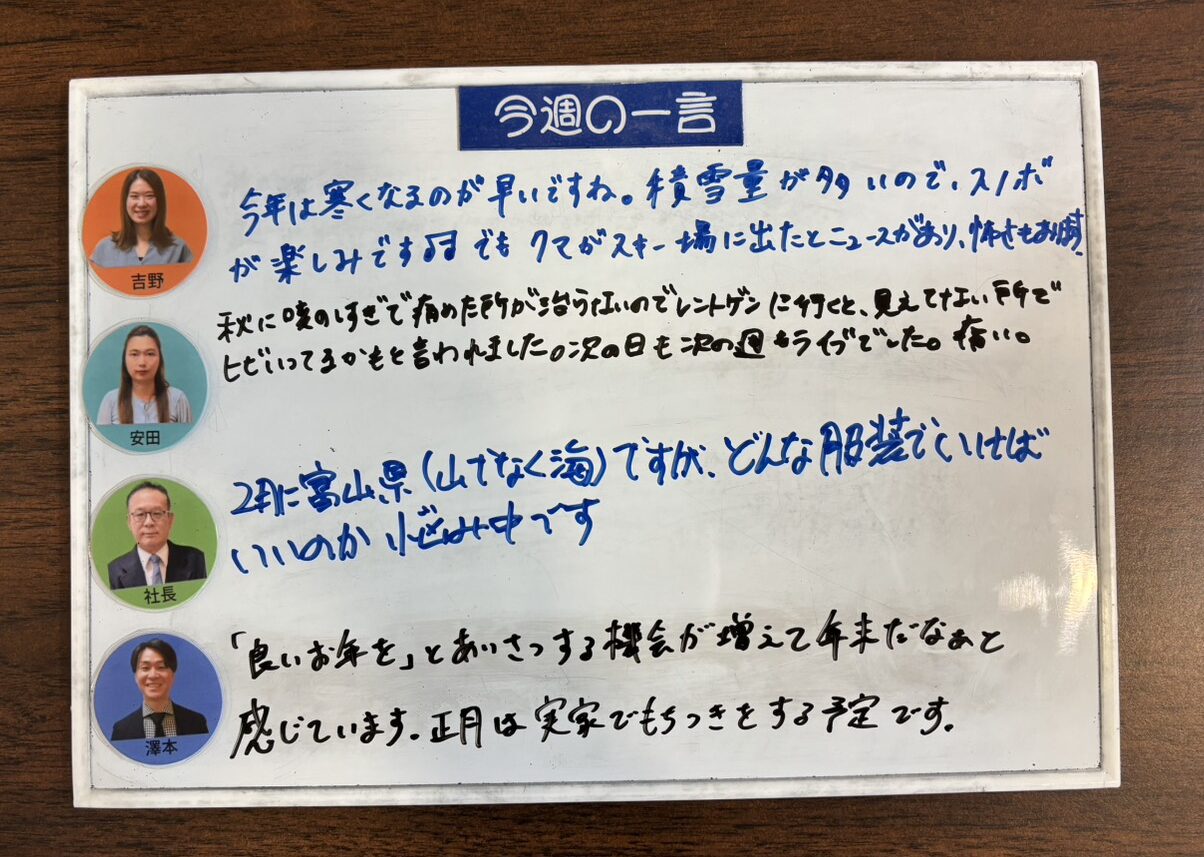 今週の一言
今年は寒くなるのが早いですね。積雪量が多いので、スノボ
が楽しみです でもクマがスキー場に出たとニュースがあり、怖さもあります
吉野
秋に咳のしすぎで痛めた所が治らないのでレントゲンに行くと、見えてない所で
ヒビいってるかもと言われました。次の日も次の週もライブでした。痛い。
安田
2月に富山県(山でなく海)ですが、どんな服装でいけば
いいのか悩み中です
社長
「良いお年を」とあいさつする機会が増えて年末だなぁと
感じています。正月は実家でもちつきをする予定です。
澤本